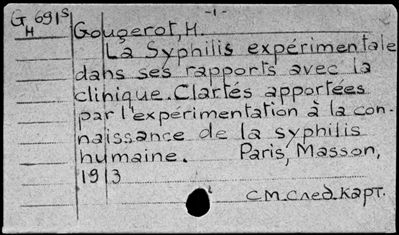 -1-
G H 691 S
Gougerot, H.
La Syphilis expérimentale
dans ses rapports avec la
clinique. Clartés apportées
par l'expérimentation à la con-
naissance de la syphilis
humaine. Paris, Masson,
1913
См. след. карт.